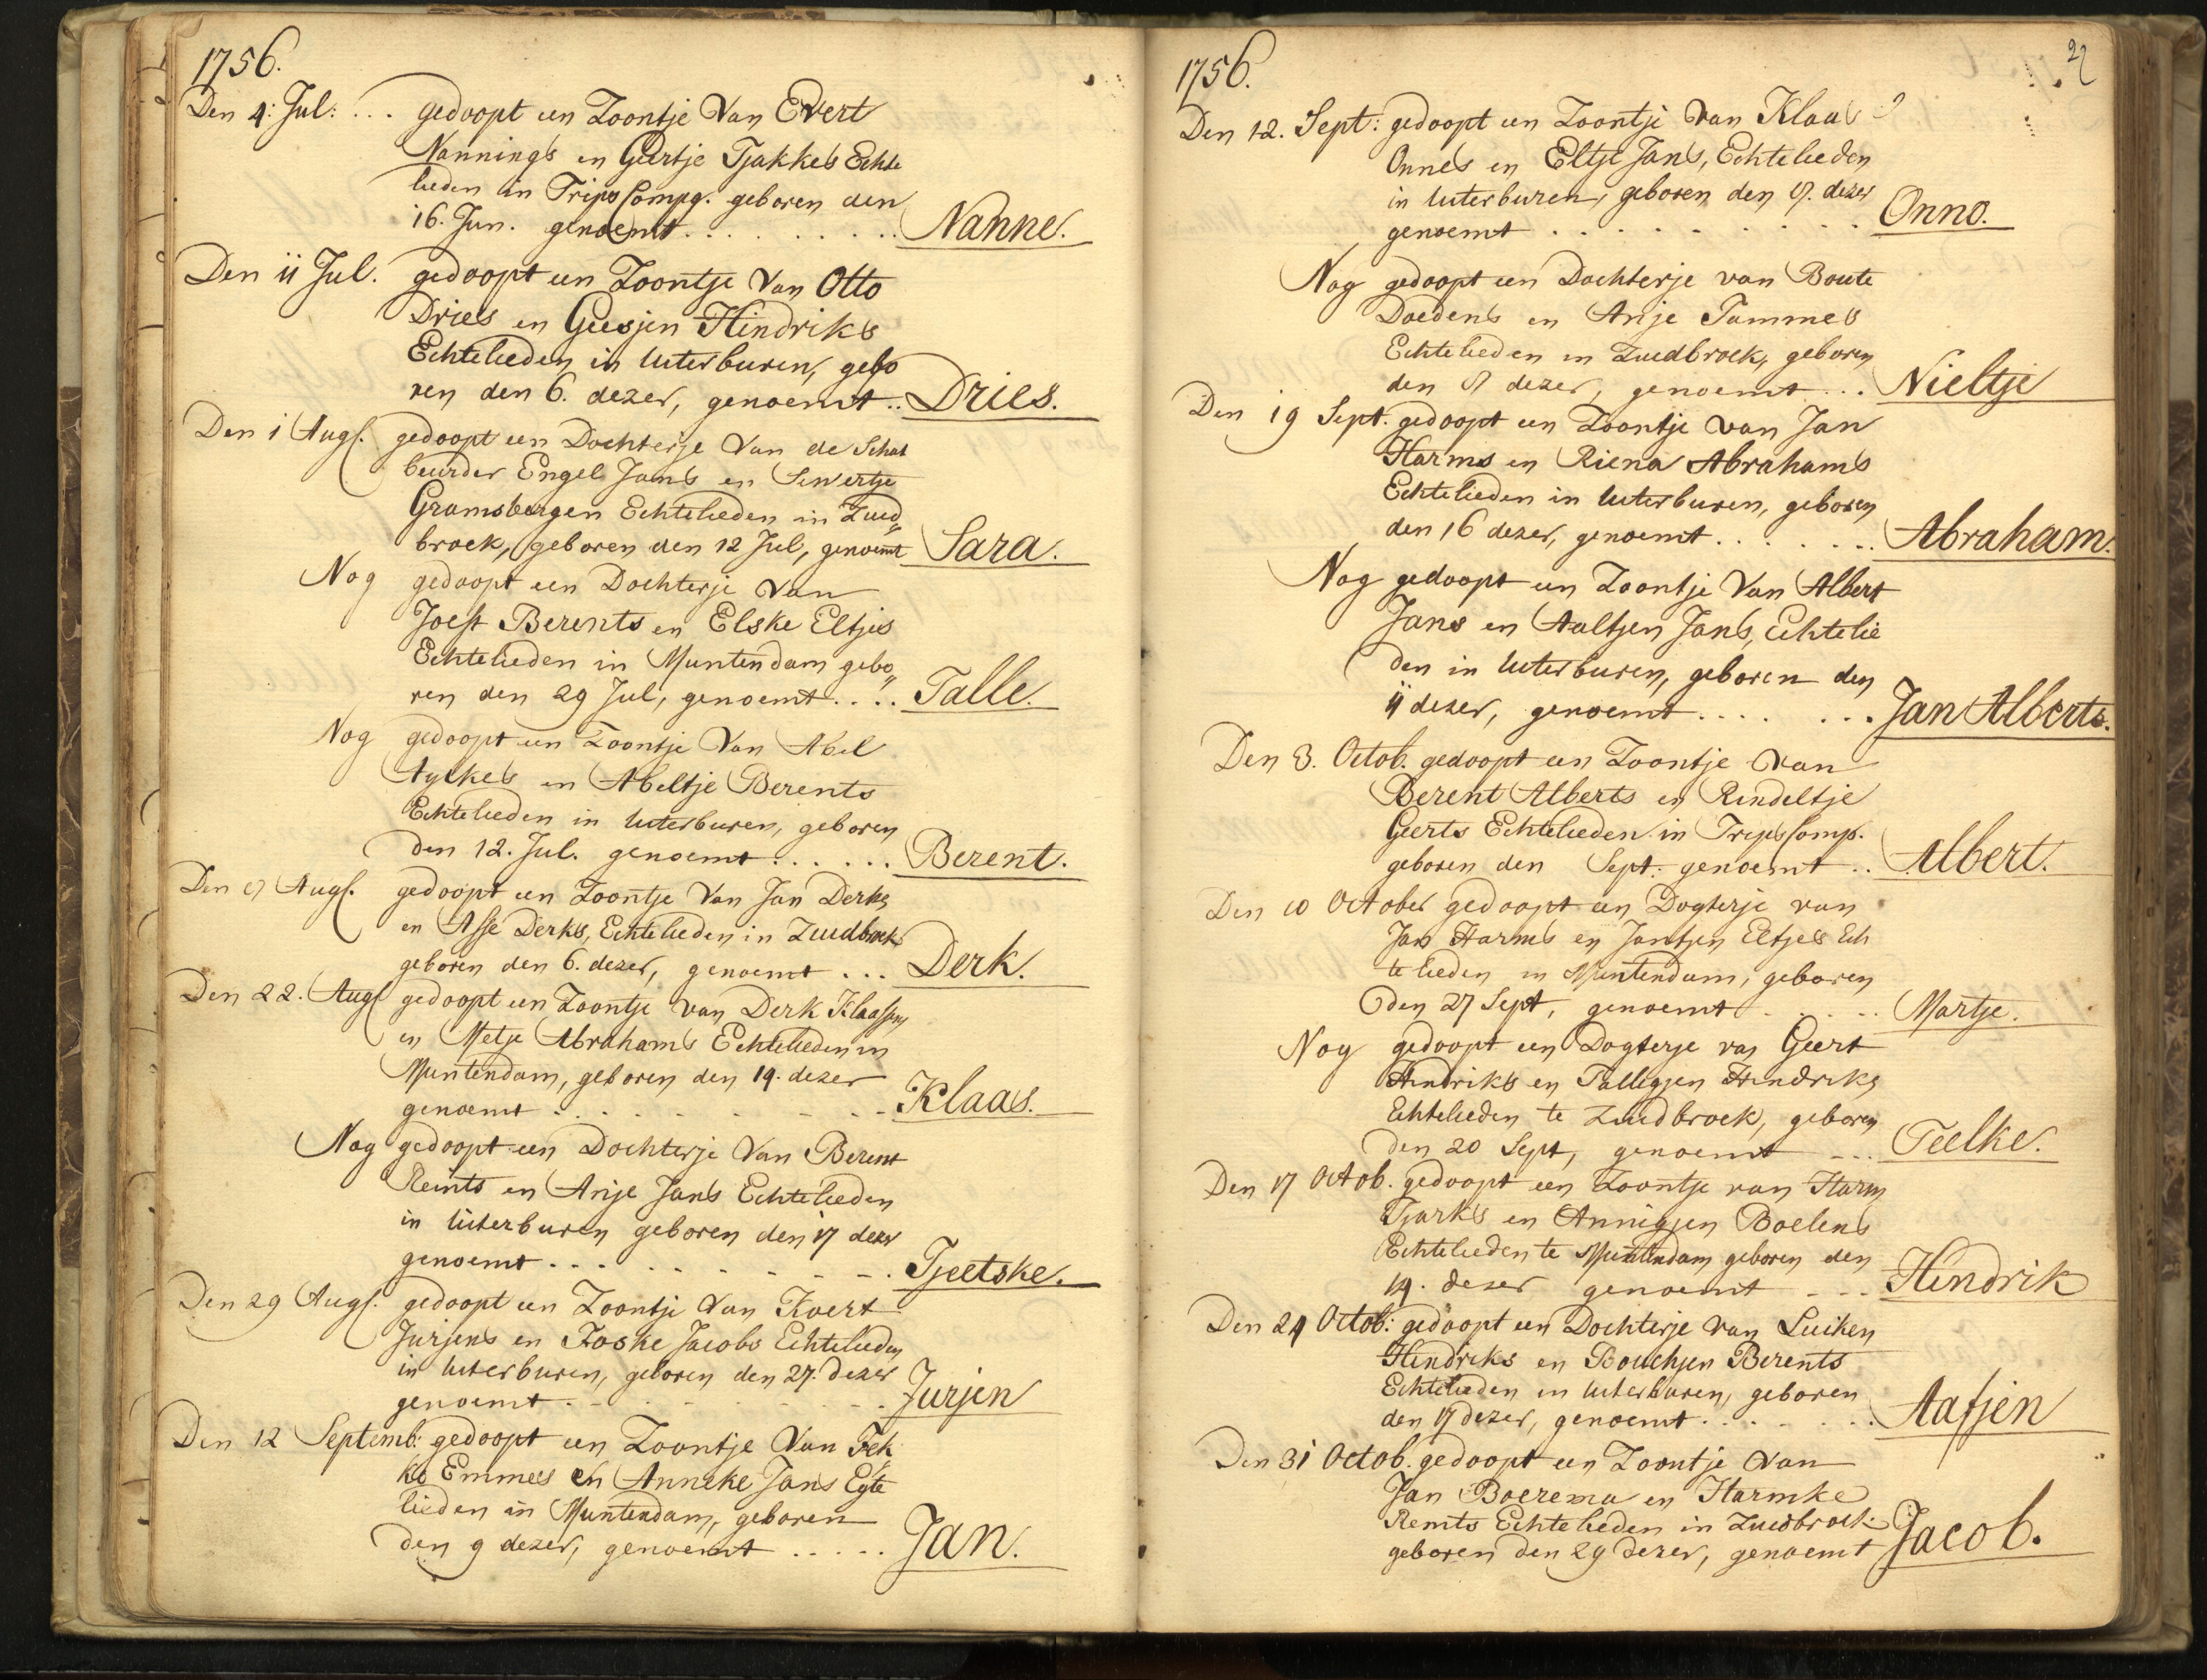 1756.
Den 4: Jul: ... gedoopt een Zoontje van Evert
Nannings en Geertje Tjakkes Echte
lieden in Trips Compg. geboren den
16. Jun. genoemt......... Nanne.
Den 11 Jul. gedoopt een Zoontje van Otto
Dries en Geesjen Hindriks
Echtelieden in Uiterburen, gebo
ren den 6. dezer, genoemt.. Dries.
Den 1 Augs. gedoopt een Dochterje van de Schat
beurder Engel Jans en Sewertje
Gramsbergen Echtelieden in Zuid„
broek, geboren den 12 Jul, genoemt Sara.
Nog gedoopt een Dochterje van
Joest Berents en Elske Eltjes
Echtelieden in Muntendam gebo„
ren den 29 Jul, genoemt.... Talle.
Nog gedoopt een Zoontje van Abel
Ayelkes en Abeltje Berents
Echtelieden in Uiterburen, geboren
den 12. Jul. genoemt...... Berent.
Den Augs. gedoopt een Zoontje van Jan Derks
en Asse Derks, Echtelieden in Zuidbroek
geboren den 6. dezer, genoemt ... Derk.
Den 22. Augs gedoopt een Zoontje van Derk Klaassens
en Metje Abrahams Echtelieden in
Muntendam, geboren den 19. dezer
genoemt ......... Klaas.
Nog gedoopt een Dochterje van Berent
Reints en Anje Jans Echtelieden
in Uiterburen geboren den 17 dezer
genoemt......... Tjeetske.
Den 29 Augs. gedoopt een Zoontje van Koert
Jurjens en Foske Jacobs Echtelieden
in Uiterburen, geboren den 27. dezer
genoemt......... Jurjen
Den 12 Septemb: gedoopt een Zoontje van Fek
ko Emmes en Anneke Jans Egte
lieden in Muntendam, geboren
den 9 dezer, genoemt ..... Jan.
22
1756.
Den 12. Sept: gedoopt een Zoontje van Klaas
Onnes en Eltje Jans, Echtelieden
in Uiterburen, geboren den dezer
genoemt ......... Onno.
Nog gedoopt een Dochterje van Boute
Doedens en Anje Tammes
Echtelieden in Zuidbroek, geboren
den dezer, genoemt... Nieltje
Den 19 Sept. gedoopt een Zoontje van Jan
Harms en Riena Abrahams
Echtelieden in Uiterburen, geboren
den 16 dezer, genoemt....... Abraham.
Nog gedoopt een Zoontje van Albert
Jans en Aaltjen Jans, Echtelie
den in Uiterburen, geboren den
11 dezer, genoemt....... Jan Alberts.
Den 3. Octob. gedoopt een Zoontje van
Berent Alberts en Rendeltje
Geerts Echtelieden in Trips Comp.
geboren den Sept: genoemt .. Albert.
Den 10 October gedoopt een Dogterje van
Jan Harms en Jantjen Eltjes Ech
te lieden in Muntendam, geboren
den 27 Sept, genoemt ..... Martje.
Nog gedoopt een Dogterje van Geert
Hindriks en Talligjen Hindriks
Echtelieden te Zuidbroek, geboren
den 20 Sept, genoemt ... Teelke.
Den 17 Octob. gedoopt een Zoontje van Harm
Tjarks en Annigjen Boelens
Echtelieden te Muntendam geboren den
14. dezer genoemt ... Hindrik
Den 24 Octob: gedoopt een Dochterje van Luiken
Hindriks en Bouchjen Berents
Echtelieden in Uiterburen, geboren
den 17 dezer, genoemt....... Aafjen
Den 31 Octob. gedoopt een Zoontje van
Jan Boerema en Harmke
Remts Echtelieden in Zuidbroek
geboren den 29 dezer, genoemt Jacob.